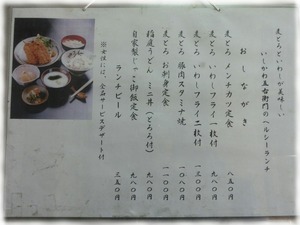 麦とろといわしが美味しい
いしかわ五右衛門のヘルシーランチ
おしながき
麦とろ メンチカツ定食 八五〇円
麦とろ いわしフライ一枚付 九八〇円
麦とろ いわしフライ二枚付 一三〇〇円
麦とろ 豚肉スタミナ焼 一〇八〇円
麦とろ お刺身定食 一一〇〇円
稲庭うどん ミニ丼(とろろ付) 九八〇円
自家製じゃこ御飯定食 九八〇円
ランチビール 三五〇円
※女性には、全品サービスデザート付